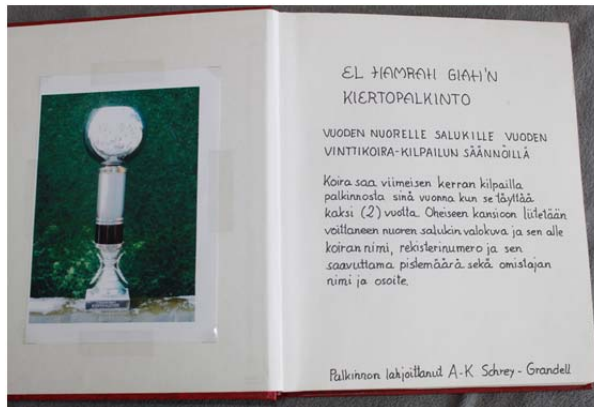 EL HAMRAH GIAH'N
KIERTOPALKINTO
VUODEN NUORELLE SALUKILLE VUODEN
VINTTIKOIRA-KILPAILUN SÄÄNNÖILLÄ
Koira saa viimeisen kerran kilpailla
palkinnosta sinä vuonna kun se täyttää
kaksi (2) vuotta. Oheiseen kansioon liitetään
voittaneen nuoren salukin valokuva ja sen alle
koiran nimi, rekisterinumero ja sen
saavuttama pistemäärä sekä omistajan
nimi ja osoite.
Palkinnon lahjoittanut A-K Schrey-Grandell